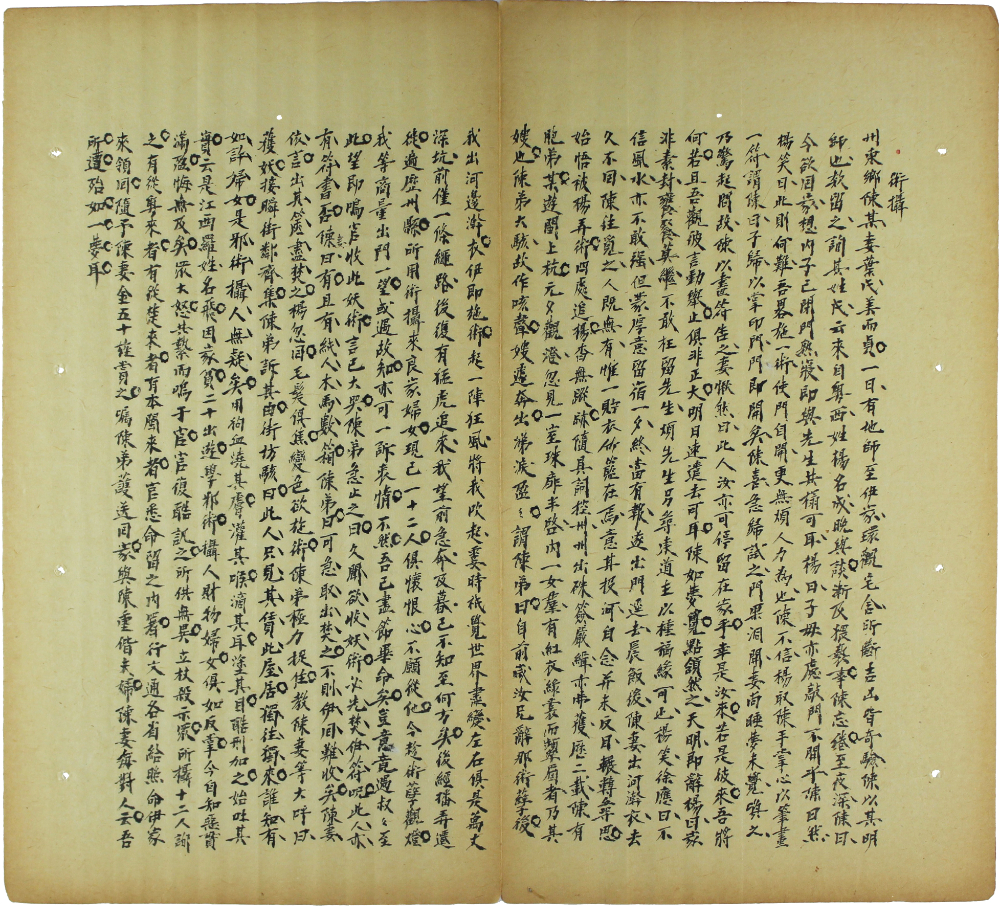 術攝
州東鄉陳某妻葉氏美而貞一日有地師至伊家環觀宅舍所斷吉凶皆奇驗陳以其明
師也款留之詢其姓氏云來自粵西姓楊名成晚與談漸及猥褻事陳忘倦至夜深陳曰
今欲回家想內子已閉門熟寢即與先生共榻可耳楊曰子毋亦慮敲門不開乎陳曰然
楊笑曰此則何難吾畧施一術使門自開更無煩人力為也陳不信楊取陳手掌心以筆畫
一符謂陳曰子歸以掌印門門即開矣陳喜急歸試之門果洞開妻尚睡夢未覺喚之
乃驚起問故陳以畫符告之妻愀然曰此人汝亦可停留在家乎幸是汝來若是彼來吾將
何若且吾觀彼言動舉止俱非正大明日速遣去可耳陳如夢覺點頷然之天明即辭楊曰家
非素封饔飧莫繼不敢枉留先生煩先生另尋東道主以種福緣可也楊笑徐應曰不
信風水亦不敢強但蒙厚意留宿一夕終當有報遂出門逕去晨飯後陳妻出河澣衣去
久不回陳往覓之人既無有惟一貯衣竹籃在焉意其投河自念并未反目輾轉尋思
始悟被楊弄術四處追楊杳無蹤跡隨具詞控州州出硃簽嚴緝亦弗獲歷二載陳有
胞弟某遊閩上杭元夕觀燈忽見一室珠扉半啓內一女羣有紅衣綠裳而顰眉者乃其
嫂也陳弟大駭故作咳聲嫂遽奔出涕淚盈〻謂陳弟曰自前歲汝兄辭那術孽後
我出河邊澣衣伊即施術起一陣狂風將我吹起霎時祇覺世界盡變左右俱是萬丈
深坑前僅一條纏路後復有猛虎追來我望前急奔及暮已不知至何方矣後經播弄遠
從過歷州縣所用術攝來良家婦女現已一十二人俱懷恨心不願從他今趁術孽觀燈
我等商量出門一望或遇故知亦可一訴衷情不然吾已盡節畢命矣豈意竟遇叔〻至
此望即鳴官收此妖術言已大哭陳弟急止之曰久聞欲收妖術必先焚伊符呪此人亦
有符書否陳嫂曰有且有紙人木馬數箱陳弟曰可急取出焚之不則伊回難收矣陳妻
依言出其篋盡焚之楊忽回毛髮俱焦變色欲施術陳弟極力捉住教陳妻等大呼曰
獲妖接聯街鄰齊集陳弟訴其由街坊駭曰此人只見其賃此屋居獨往獨來誰知有
如許婦女是邪術攝人無疑矣用狗血澆其膚灌其喉滴其耳塗其目酷刑加之始吐其
實云是江西羅姓名飛因家貧二十出遊學邪術攝人財物婦女俱如反掌今自知惡貫
滿盈悔無及矣眾大怒共繫而鳴于官官復酷訊之所供無異立杖殺示眾所攝十二人詢
之有從粵來者有從楚來者有本閩來者官悉命留之內署行文通各省給照命伊家
來領回隨予陳妻金五十鎰賞之囑陳弟護送回家與陳重偕夫婦陳妻每對人云吾
所遭殆如一夢耳